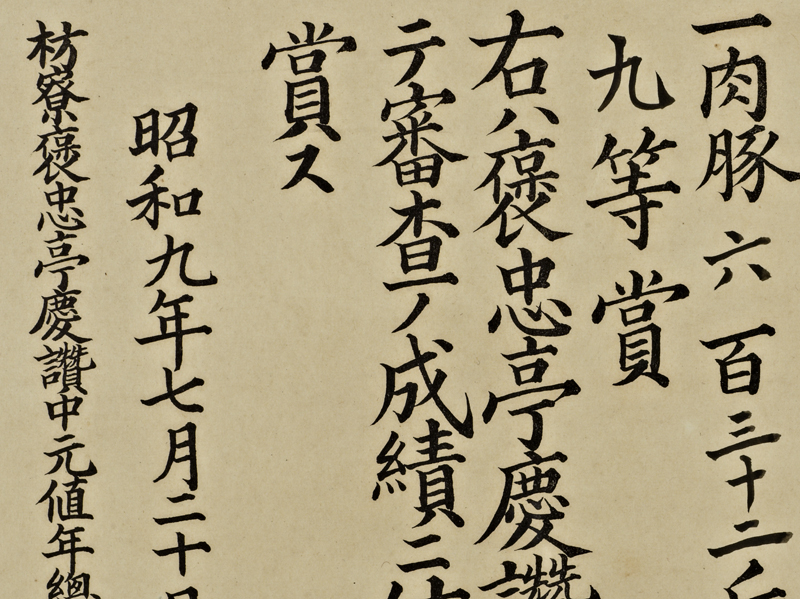 一肉豚六百三十二斤
九等賞
右ハ褒忠亭慶讚
ニテ審查ノ成績ニ依
賞ス
昭和九年七月二十日
枋寮褒忠亭慶讚中元値年總